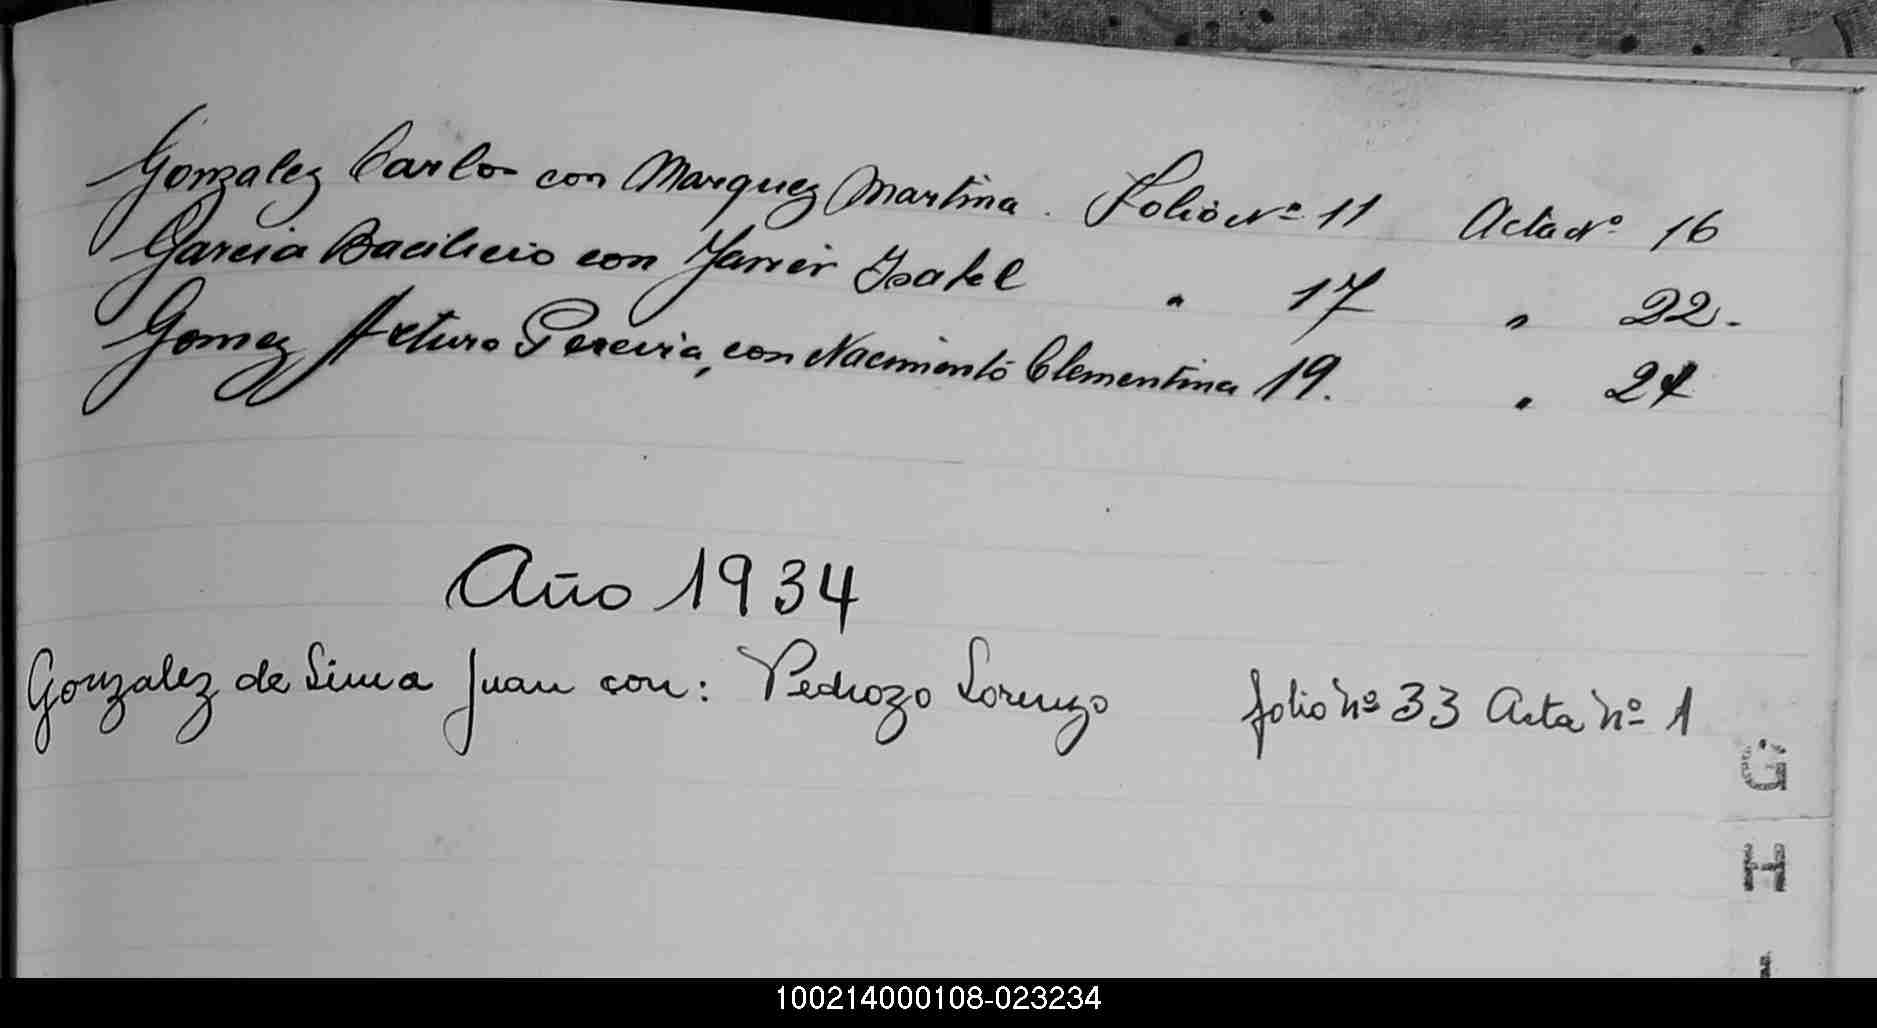 Gonzalez Carlos con Marquez Martina. Folio Nº 11 Acta Nº 16
Garcia Bacilicio con Javier Isabel " 17 " 22.
Gomez Arturo Pereira, con Nacimento Clementina 19. " 24
Año 1934
Gonzalez de Lima Juan con: Pedrozo Lorenzo folio Nº 33 Acta Nº 1
G
H
100214000108-023234